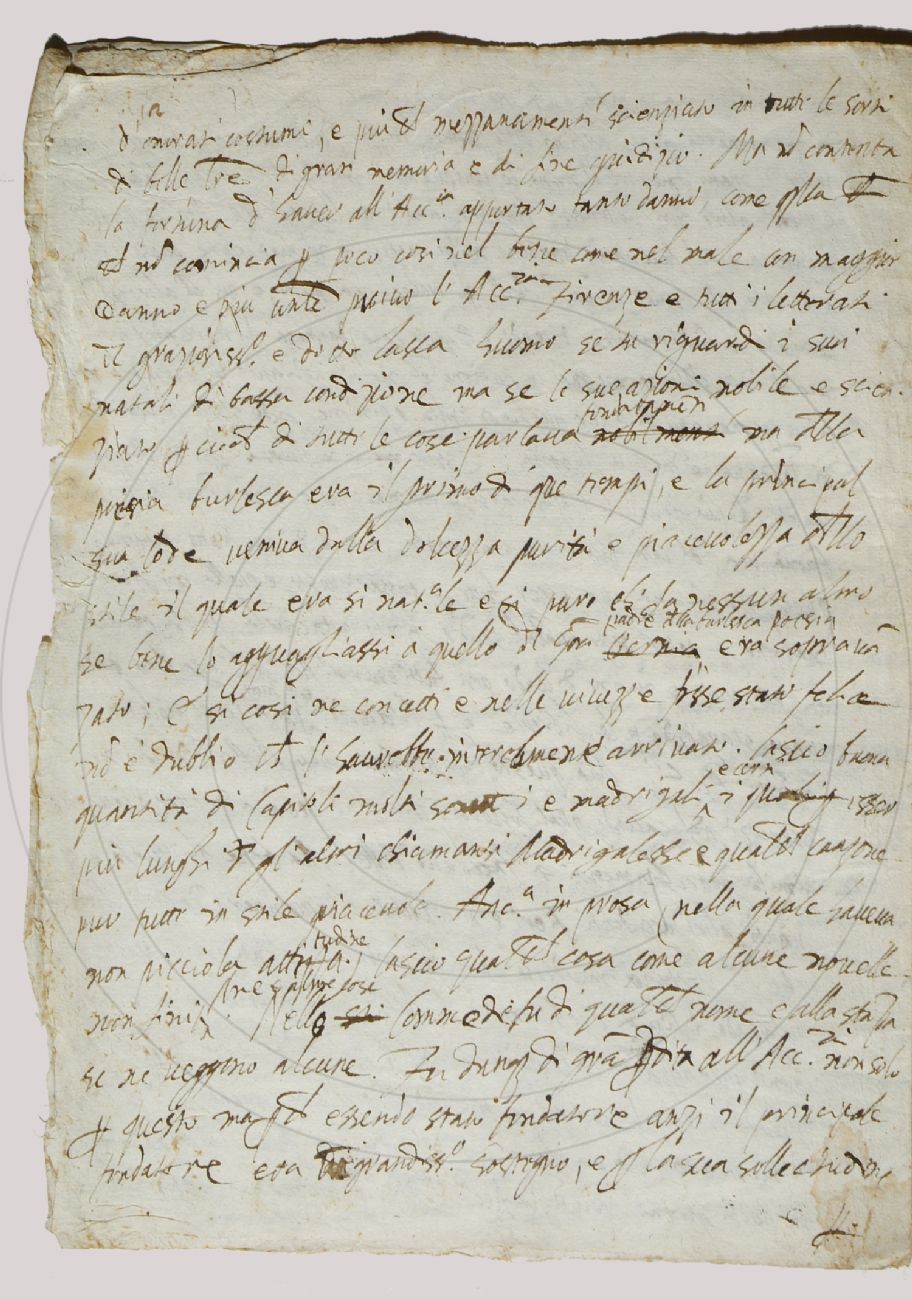 d'onorati costumi, e più ch mezzanamente scienziato in tutte le sorti
di belle lre di gran memoria e di fine giudizio. Ma nō contenta
la fortuna d'haver all'Acc.ia apportato tanto danno, come qlla ch
nō comincia p poco così nel bene come nel male con maggior
danno e più privò l'Acc. Firenze e tutti i letterati
Il graziosiss.o e dotto Lasca huomo se tu riguardi i suoi
natali di bassa condizione ma se le sue azioni nobile e scien
ziato p ciò ch di tutte le cose parlava
fondatamente
nobilmente ma nella
poesia burlesca era il primo di que tempi, e la principal
sua lode veniva dalla dolcezza purità e piacevolezza dello
stile il quale era sì nat.le e sì puro ch da nessun altro
padre della burlesca poesia
se bene lo agguagliassi a quello del Bernia era sopravā
zato; E si così ne concetti e nelle vivezze fosse stato felice
nō è dubbio ch l'haverebbe interamente arrivato. lasciò buona
quantità di Capitoli molti sonetti e madrigali
e cert
i quali p esser
più lunghi ch gl'altri chiamansi Madrigalesse e qualch canzone
pur tutte in stile piacevole. Anc.a in prosa, nella quale haveva
non picciola attitudine, lasciò qualch cosa come alcune novelle
non finite
altre cose
Nelle Commedie fu di qualch nome e alla stāpa
se ne veggono alcune. Fu dunq di grā pdita all'Acc.ia non solo
p questo ma pch essendo stato fondatore anzi il principale
fondatore era di grandiss.o sostegno, e p la sua sollecitudine